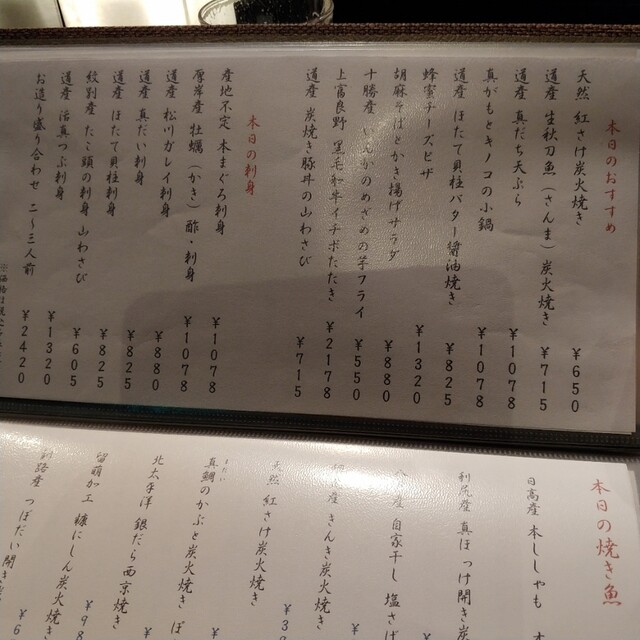 本日のおすすめ
天然 紅さけ炭火焼き ¥650
道産 生秋刀魚(さんま)炭火焼き ¥715
道産 真だち天ぷら ¥1078
真がもとキノコの小鍋 ¥1078
道産 ほたて貝柱バター醤油焼き ¥825
蜂蜜チーズピザ ¥1320
胡麻そばとかき揚げサラダ ¥880
十勝産 いんかのめざめの芋フライ ¥550
上富良野 黒毛和牛イチボたたき ¥2178
道産 炭焼き豚丼の山わさび ¥715
本日の刺身
産地不定 本まぐろ刺身 ¥1078
厚岸産 牡蠣(かき)酢・刺身 ¥1078
道産 松川ガレイ刺身 ¥880
道産 真だい刺身 ¥825
道産 ほたて貝柱刺身 ¥825
紋別産 たこ頭の刺身 山わさび ¥605
道産 活真つぶ刺身 ¥1320
お造り盛り合わせ 二~三人前 ¥2420
本日の焼き魚
日高産 本ししゃも
利尻産 真ほっけ開き炭
産 自家干し 塩さけ
産 きんき炭火焼き ¥
天然 紅さけ炭火焼き ¥3
真鯛のかぶと炭火焼き ぽ ¥
またい
北太平洋 銀だら西京焼き ¥
留萌加工 糠にしん炭火焼き ¥98
釧路産 つぼだい開き炭 ¥6